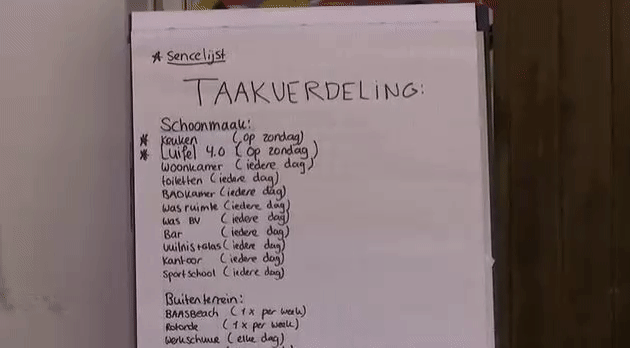 * Sencelijst
TAAKVERDELING:
Schoonmaak:
* Keuken (op zondag)
* Luifel 4.0 (op zondag)
woonkamer (iedere dag)
toiletten (iedere dag)
BADKamer (iedere dag)
was ruimte (iedere dag)
was BV (iedere dag)
Bar (iedere dag)
vuilnis+glas (iedere dag)
Kantoor (iedere dag)
Sportschool (iedere dag)
Buitenterrein:
BAASBeach (1x per week)
Rotonde (1x per week)
Werkschuur (elke dag)